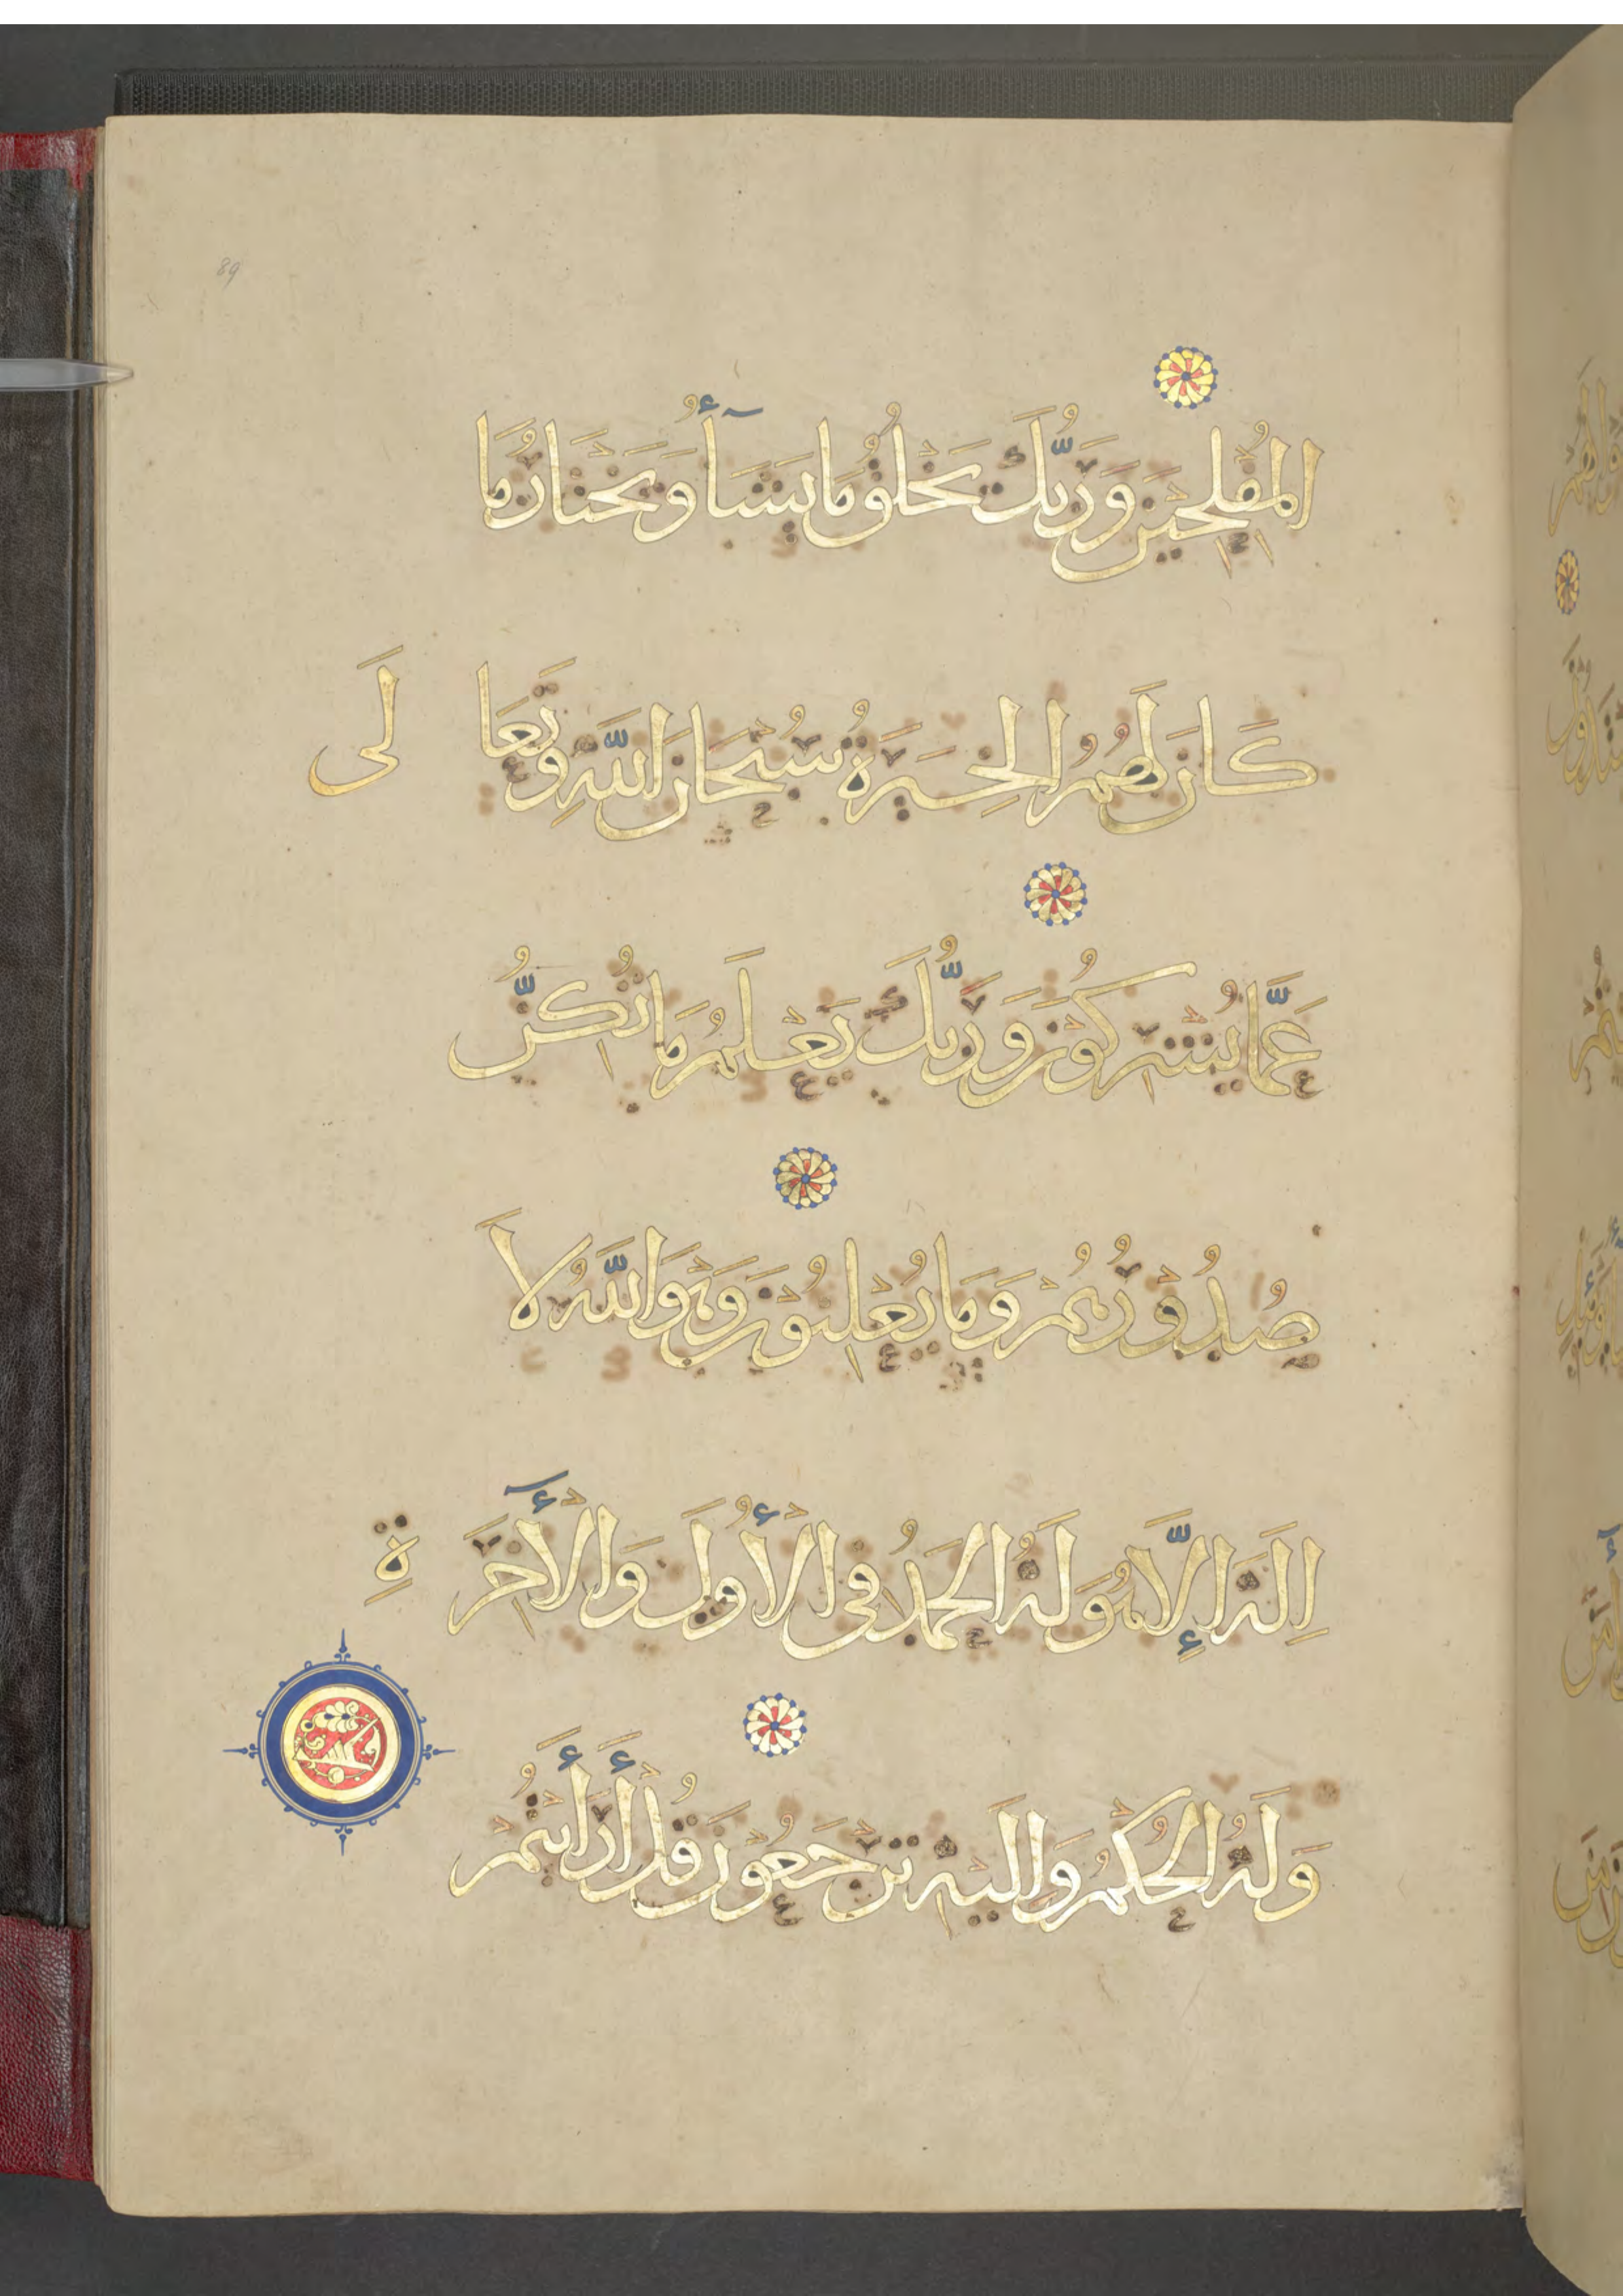 89
الْمُفْلِحِينَ وَرَبُّكَ يَخْلُقُ مَا يَشَآءُ وَيَخْتَارُ مَا
كَانَ لَهُمُ الْخِيَرَةُ سُبْحَانَ اللَّهِ وَتَعَا لَى
عَمَّا يُشْرِكُوْنَ وَرَبُّكَ يَعْلَمُ مَا تُكِنُّ
صُدُوْرُهُمْ وَمَا يُعْلِنُوْنَ وَهْوَ اللَّهُ لَا
اِلَهَ إِلَّا هُوَ لَهُ الْحَمْدُ فِى الْأُولَى وَالْأَخِرَ ةِ
وَلَهُ الْحُكْمُ وَاِلَيْهِ تُرْجَعُوْنَ قُلْ أَرَأَيْتُمْ